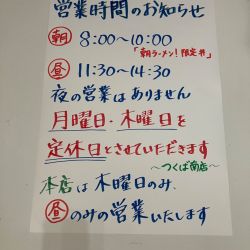 営業時間のお知らせ
朝 8:00〜10:00
「朝ラーメン!限定丼」
昼 11:30〜14:30
夜の営業はありません
月曜日・木曜日を
定休日とさせていただきます
〜つくば南店〜
本店は木曜日のみ
昼のみの営業いたします